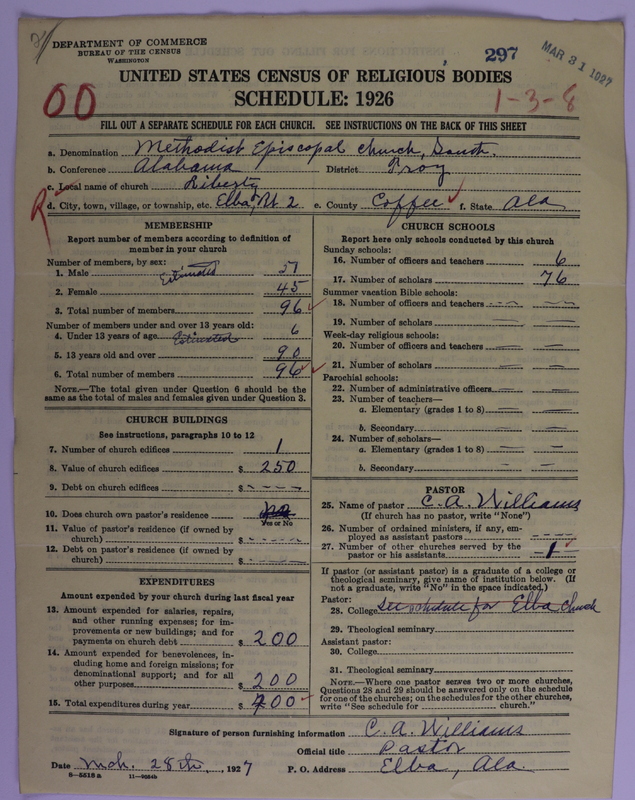 DEPARTMENT OF COMMERCE
BUREAU OF THE CENSUS
WASHINGTON
297
MAR 31 1927
UNITED STATES CENSUS OF RELIGIOUS BODIES
SCHEDULE: 1926
00
1-3-8
FILL OUT A SEPARATE SCHEDULE FOR EACH CHURCH. SEE INSTRUCTIONS ON THE BACK OF THIS SHEET
a. Denomination Methodist Episcopal Church, South.
b. Conference Alabama District Troy
c. Local name of church Liberty
d. City, town, village, or township, etc. Elba, Rt. 2 e. County Coffee f. State Ala
R
MEMBERSHIP
Report number of members according to definition of
member in your church
Number of members, by sex:
1. Male Estimated 51
2. Female 45
3. Total number of members 96
Number of members under and over 13 years old:
4. Under 13 years of age Estimated 6
5. 13 years old and over 90
6. Total number of members 96
NOTE.—The total given under Question 6 should be the
same as the total of males and females given under Question 3.
CHURCH BUILDINGS
See instructions, paragraphs 10 to 12
7. Number of church edifices 1
8. Value of church edifices $ 250
9. Debt on church edifices $
10. Does church own pastor's residence no
Yes or No
11. Value of pastor's residence (if owned by
church) $
12. Debt on pastor's residence (if owned by
church) $
EXPENDITURES
Amount expended by your church during last fiscal year
13. Amount expended for salaries, repairs,
and other running expenses; for im-
provements or new buildings; and for
payments on church debt $ 200
14. Amount expended for benevolences, in-
cluding home and foreign missions; for
denominational support; and for all
other purposes $ 200
15. Total expenditures during year $ 400
CHURCH SCHOOLS
Report here only schools conducted by this church
Sunday schools:
16. Number of officers and teachers 6
17. Number of scholars 76
Summer vacation Bible schools:
18. Number of officers and teachers
19. Number of scholars
Week-day religious schools:
20. Number of officers and teachers
21. Number of scholars
Parochial schools:
22. Number of administrative officers
23. Number of teachers—
a. Elementary (grades 1 to 8)
b. Secondary
24. Number of scholars—
a. Elementary (grades 1 to 8)
b. Secondary
PASTOR
25. Name of pastor C. A. Williams
(If church has no pastor, write "None")
26. Number of ordained ministers, if any, em-
ployed as assistant pastors
27. Number of other churches served by the
pastor or his assistants 1
If pastor (or assistant pastor) is a graduate of a college or
theological seminary, give name of institution below. (If
not a graduate, write "No" in the space indicated.)
Pastor:
28. College See schedule for Elba Church
29. Theological seminary
Assistant pastor:
30. College
31. Theological seminary
NOTE.—Where one pastor serves two or more churches,
Questions 28 and 29 should be answered only on the schedule
for one of the churches; on the schedules for the other churches,
write "See schedule for church."
Signature of person furnishing information C. A. Williams
Official title Pastor
Date Mch. 28th, 1927 P. O. Address Elba, Ala.